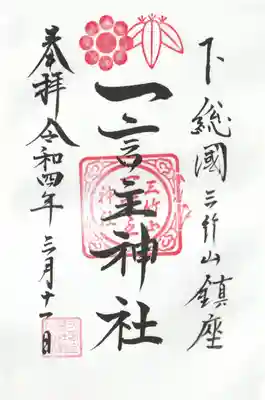 下総國三竹山鎮座
一言主神社
奉拝 令和四年 三月十一日